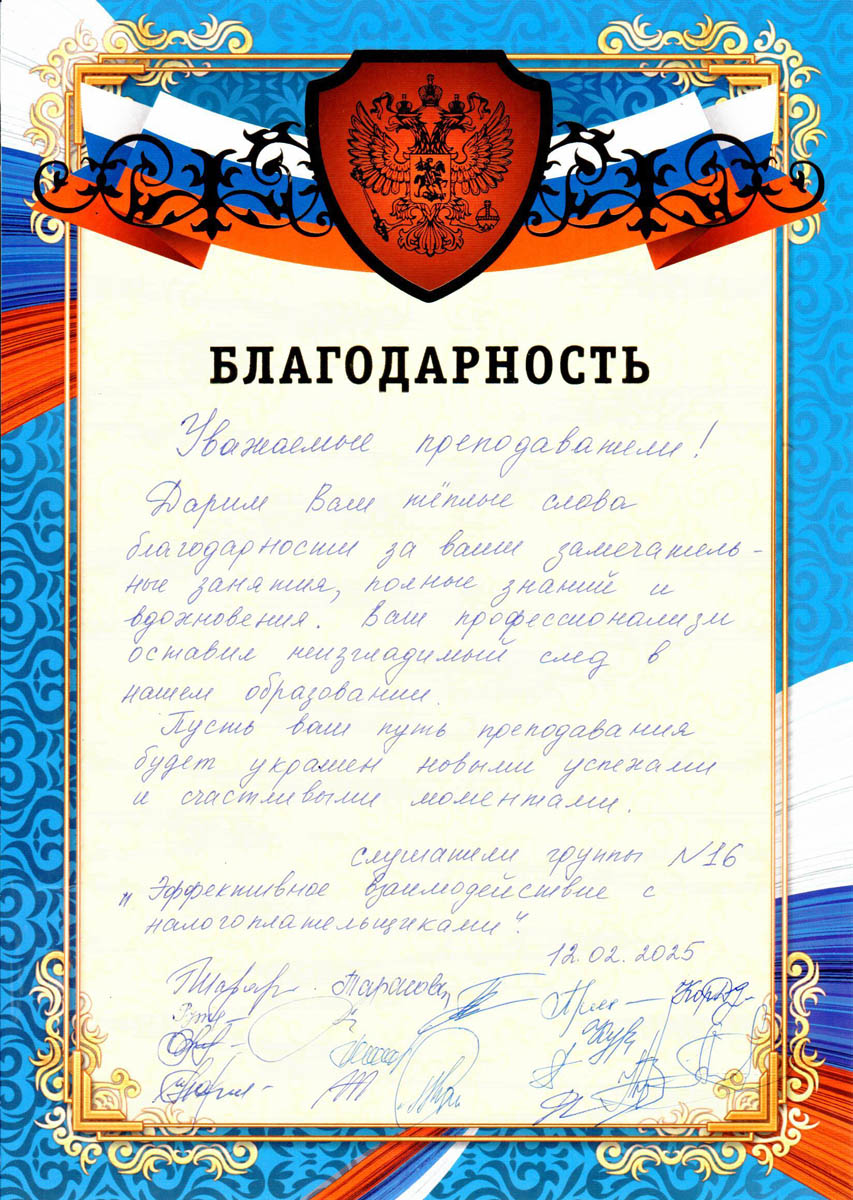 БЛАГОДАРНОСТЬ
Уважаемые преподаватели!
Дарим Вам тёплые слова
благодарности за ваши замечатель-
ные занятия, полные знаний и
вдохновения. Ваш профессионализм
оставил неизгладимый след в
нашем образовании.
Пусть ваш путь преподавания
будет украшен новыми успехами
и счастливыми моментами.
слушатели группы №16
„Эффективное взаимодействие с
налогоплательщиками“.
12.02.2025